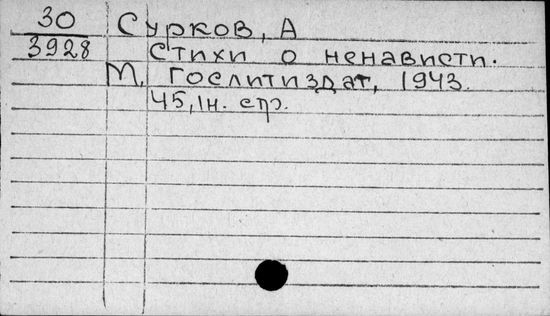 30
3928
Сурков, А
Стихи о ненависти.
М, Гослитиздат, 1943.
45, 1н. стр.